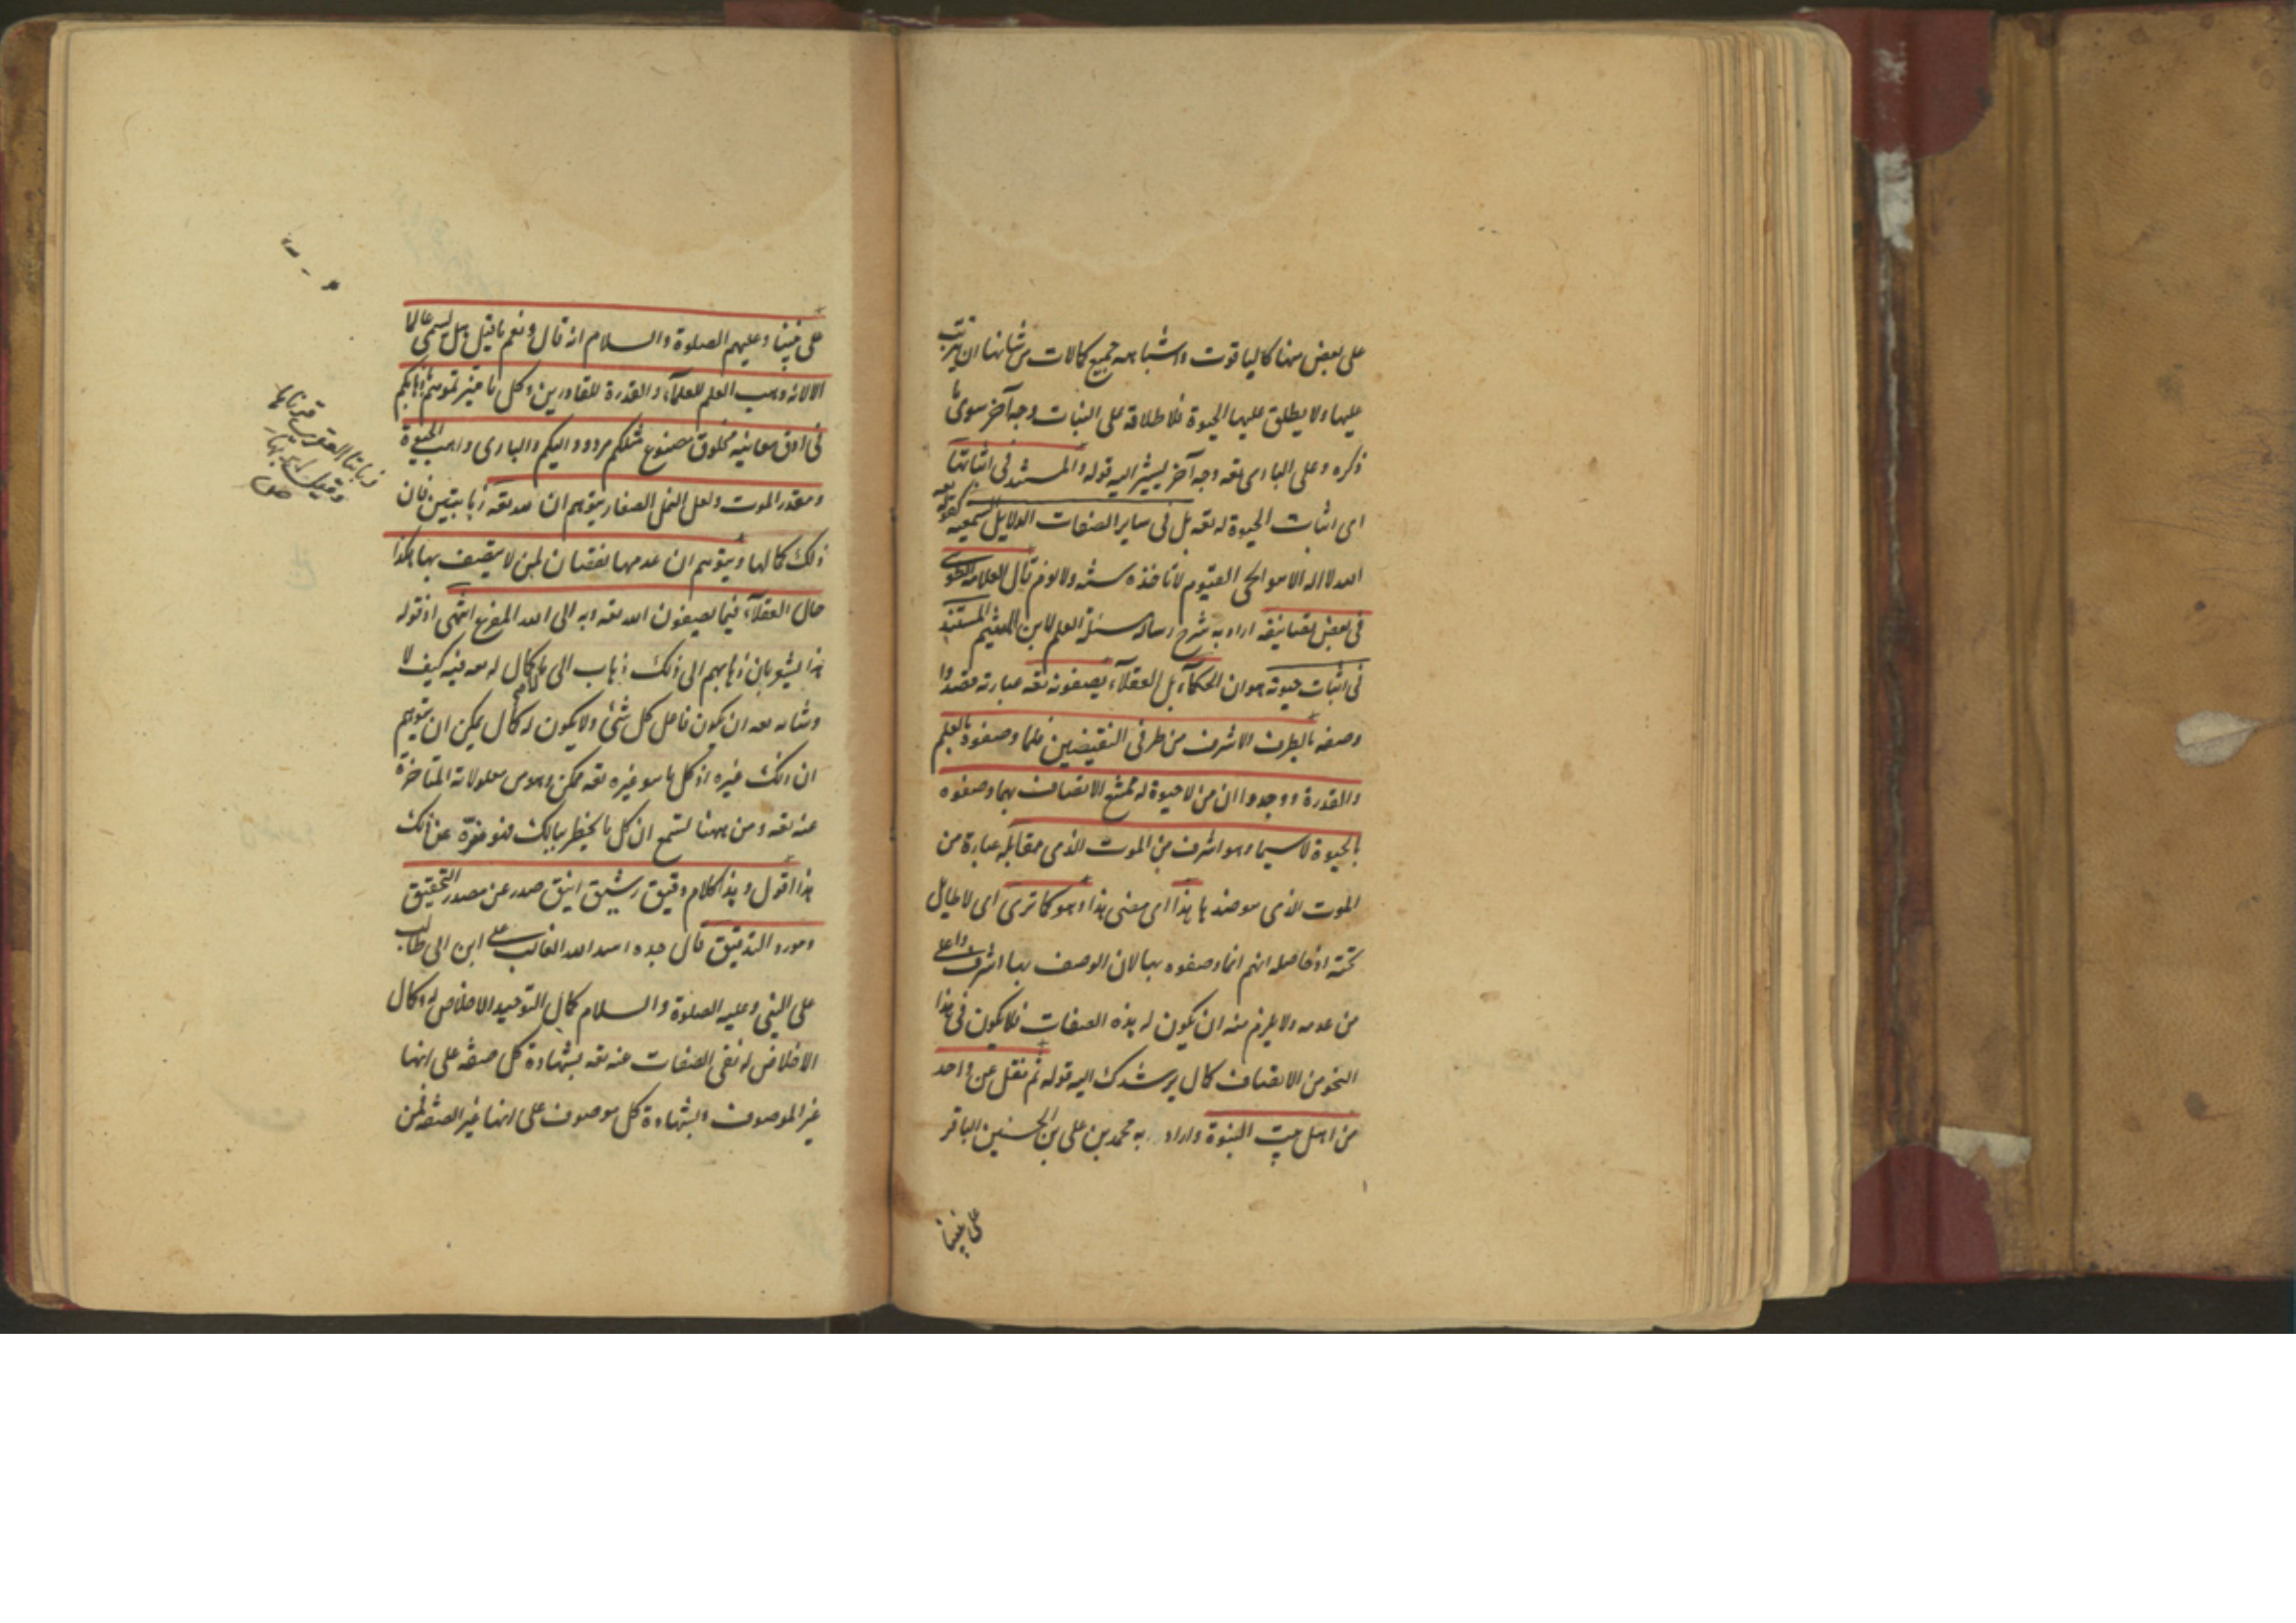 على بعض منها كالياقوت واشباهه جميع كمالات من شانها ان يترتب
عليها ولا يطلق عليها الحيوة فلاطلاقه على النبات وجه آخر سوى ما
ذكره وعلى البارى تعه وجه آخر ليشير اليه قوله والمستند فى اثباتها
اى اثبات الحيوة له تعه بل فى ساير الصفات الدلايل السمعيه كقوله تعه
الله لا اله الا هو الحى القيوم لا تاخذه سنة ولا نوم قال العلامه الطوسى
فى بعض تصانيفه اراد به شرح رسالة مسئلة العلم لابن الميثم المستند
فى اثبات حيوته هو ان الحكمآء بل العقلآء يصفونه تعه عبارته قصدوا
وصفه بالطرف الاشرف من طرفى النقيضين فلما وصفوه بالعلم
والقدرة ووجدوا ان من لا حيوة له ممتنع الاتصاف بهما وصفوه
بالحيوة لا سيما وهو اشرف من الموت الذى مقابله عبارة من
الموت الذى هو ضدها هذا اى معنى هذا وهو كما ترى اى لا طايل
تحته اذ حاصله انهم انما وصفوه بها لان الوصف بها اشرف واعلى
من عدمه ولا يلزم منه ان يكون له هذه الصفات فلا يكون فى هذا
النحو من الاتصاف كمال يرشدك اليه قوله ثم نقل عن واحد
من اهل بيت النبوة واراد به محمد بن على بن الحسين الباقر
على نبينا
على نبينا وعليهم الصلوة والسلام انه قال ونعم ما قيل هل يسمى عالما
الا لانه وهب العلم للعلمآء والقدرة للقادرين وكل ما ميزتموهم باوهامكم
فى ادق معانيه مخلوق مصنوع مثلكم مردود اليكم والبارى واهب الحيوة
ومقدر الموت ولعل النمل الصغار يتوهم ان لله تعه زبانيتين فان
ذلك كمالها ويتوهم ان عدمها نقصان لمن لا يتصف بها هكذا
حال العقلآء فيما يصفون الله تعه وبه الى الله المفزع انتهى اذ قوله
هذا يشعر بان ذهابهم الى ذلك ذهاب الى ما لا كمال له معه فيه كيف لا
وشانه تعه ان يكون فاعل كل شئ ولا يكون له كمال يمكن ان يتوهم
ان انك غيره اذ كل ما هو غيره تعه ممكن وهو من معلولاته المتاخرة
عنه تعه ومن ههنا تسمع ان كل ما يخطر ببالك فهو منزه عن ذلك
هذا اقول وهذا كلام دقيق رشيق انيق صدر عن مصدر التحقيق
ومورد التدقيق قال جده اسد الله الغالب على ابن ابى طالب
على النبى وعليه الصلوة والسلام كمال التوحيد الاخلاص له وكمال
الاخلاص له نفى الصفات عنه تعه بشهادة كل صفة على انها
غير الموصوف وبشهادة كل موصوف على انها غير الصفة فمن
زبانتا العقرب قرناها